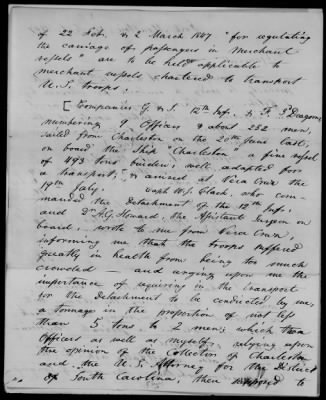 of 22 Feb. & 2 March 1847 "for regulating
the carriage of passengers in Merchant
vessels" are to be held applicable to
merchant vessels chartered to transport
U.S. troops.
[Companies G. & I. 12th Inf. & F. 3d Dragoons,
numbering 9 Officers & about 252 men,
sailed from Charleston on the 20th June last,
on board the Ship "Charleston" a fine vessel
of 493 tons burden; well adapted for
a transport; & arrived at Vera Cruz the
19th July. Capt. W. S. Clark. who com-
manded the Detachment of the 12th Inf.
and Dr. Howard, the Assistant Surgeon on
board, wrote to me from Vera Cruz,
informing me that the troops suffered
greatly in health from being too much
crowded — and urging upon me the
importance of requiring in the transport
for the Detachment to be conducted by me,
a tonnage in the proportion of not less
than 5 tons to 2 men; which these
Officers as well as myself, relying upon
the opinion of the Collector of Charleston
and the U.S. Attorney for the District
of South Carolina, then supposed to